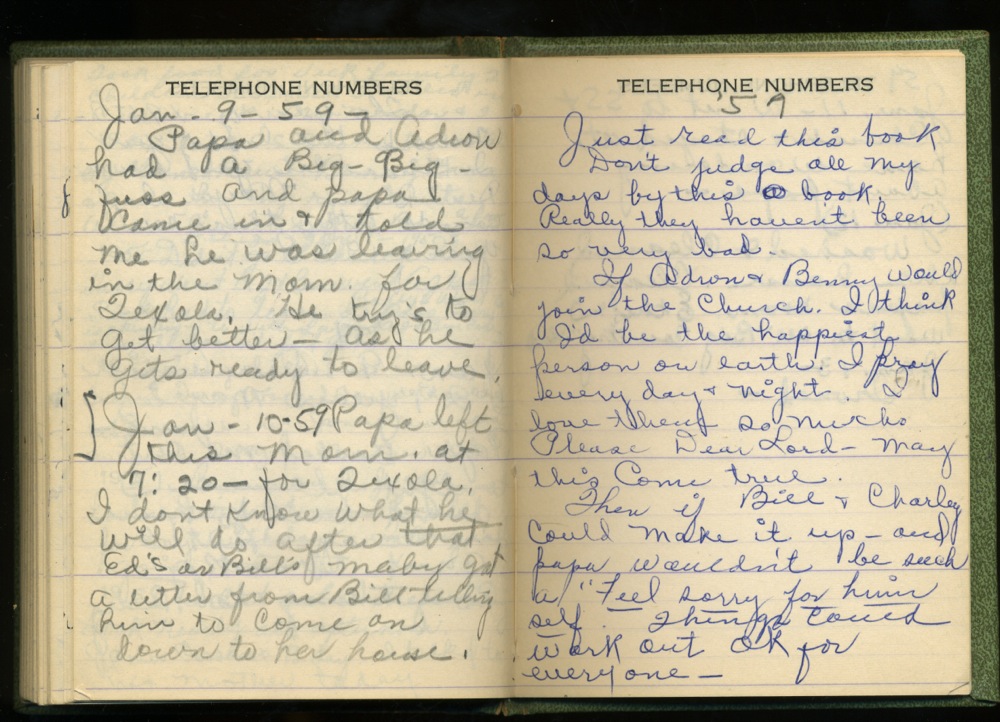 TELEPHONE NUMBERS
Jan - 9 - 59 -
Papa and Adron
had a Big - Big -
fuss and papa
Came in & told
me he was leaving
in the Morn. for
Texola. He try's to
get better - as he
gets ready to leave.
Jan - 10-59 Papa left
this Morn. at
7:20 - for Texola.
I don't Know what he
will do after that
Ed's or Bill's maby got
a letter from Bill telling
him to Come on
down to her house.
TELEPHONE NUMBERS
'59
Just read this book
Don't judge all my
days by this book.
Really they havent been
so very bad.
If Adron & Benny would
join the Church. I think
I'd be the happiest
person on earth. I pray
every day & night. I
love them so much.
Please Dear Lord - may
this Come true.
Then if Bill & Charley
Could make it up - and
papa wouldn't be such
a "Feel sorry for him
self. Things Could
work out OK for
everyone -